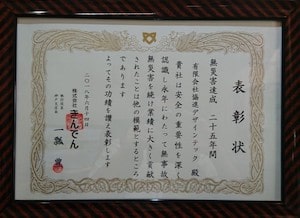 表彰状
無災害達成 二十五年間
有限会社協進デザインテック 殿
貴社は安全の重要性を深く
認識し永年にわたって無事故
無災害を続け業績に大きく貢献
されたことは他の模範とするところ
であります
よってその功績を讃え表彰します
二〇一八年六月十四日
株式会社きんでん